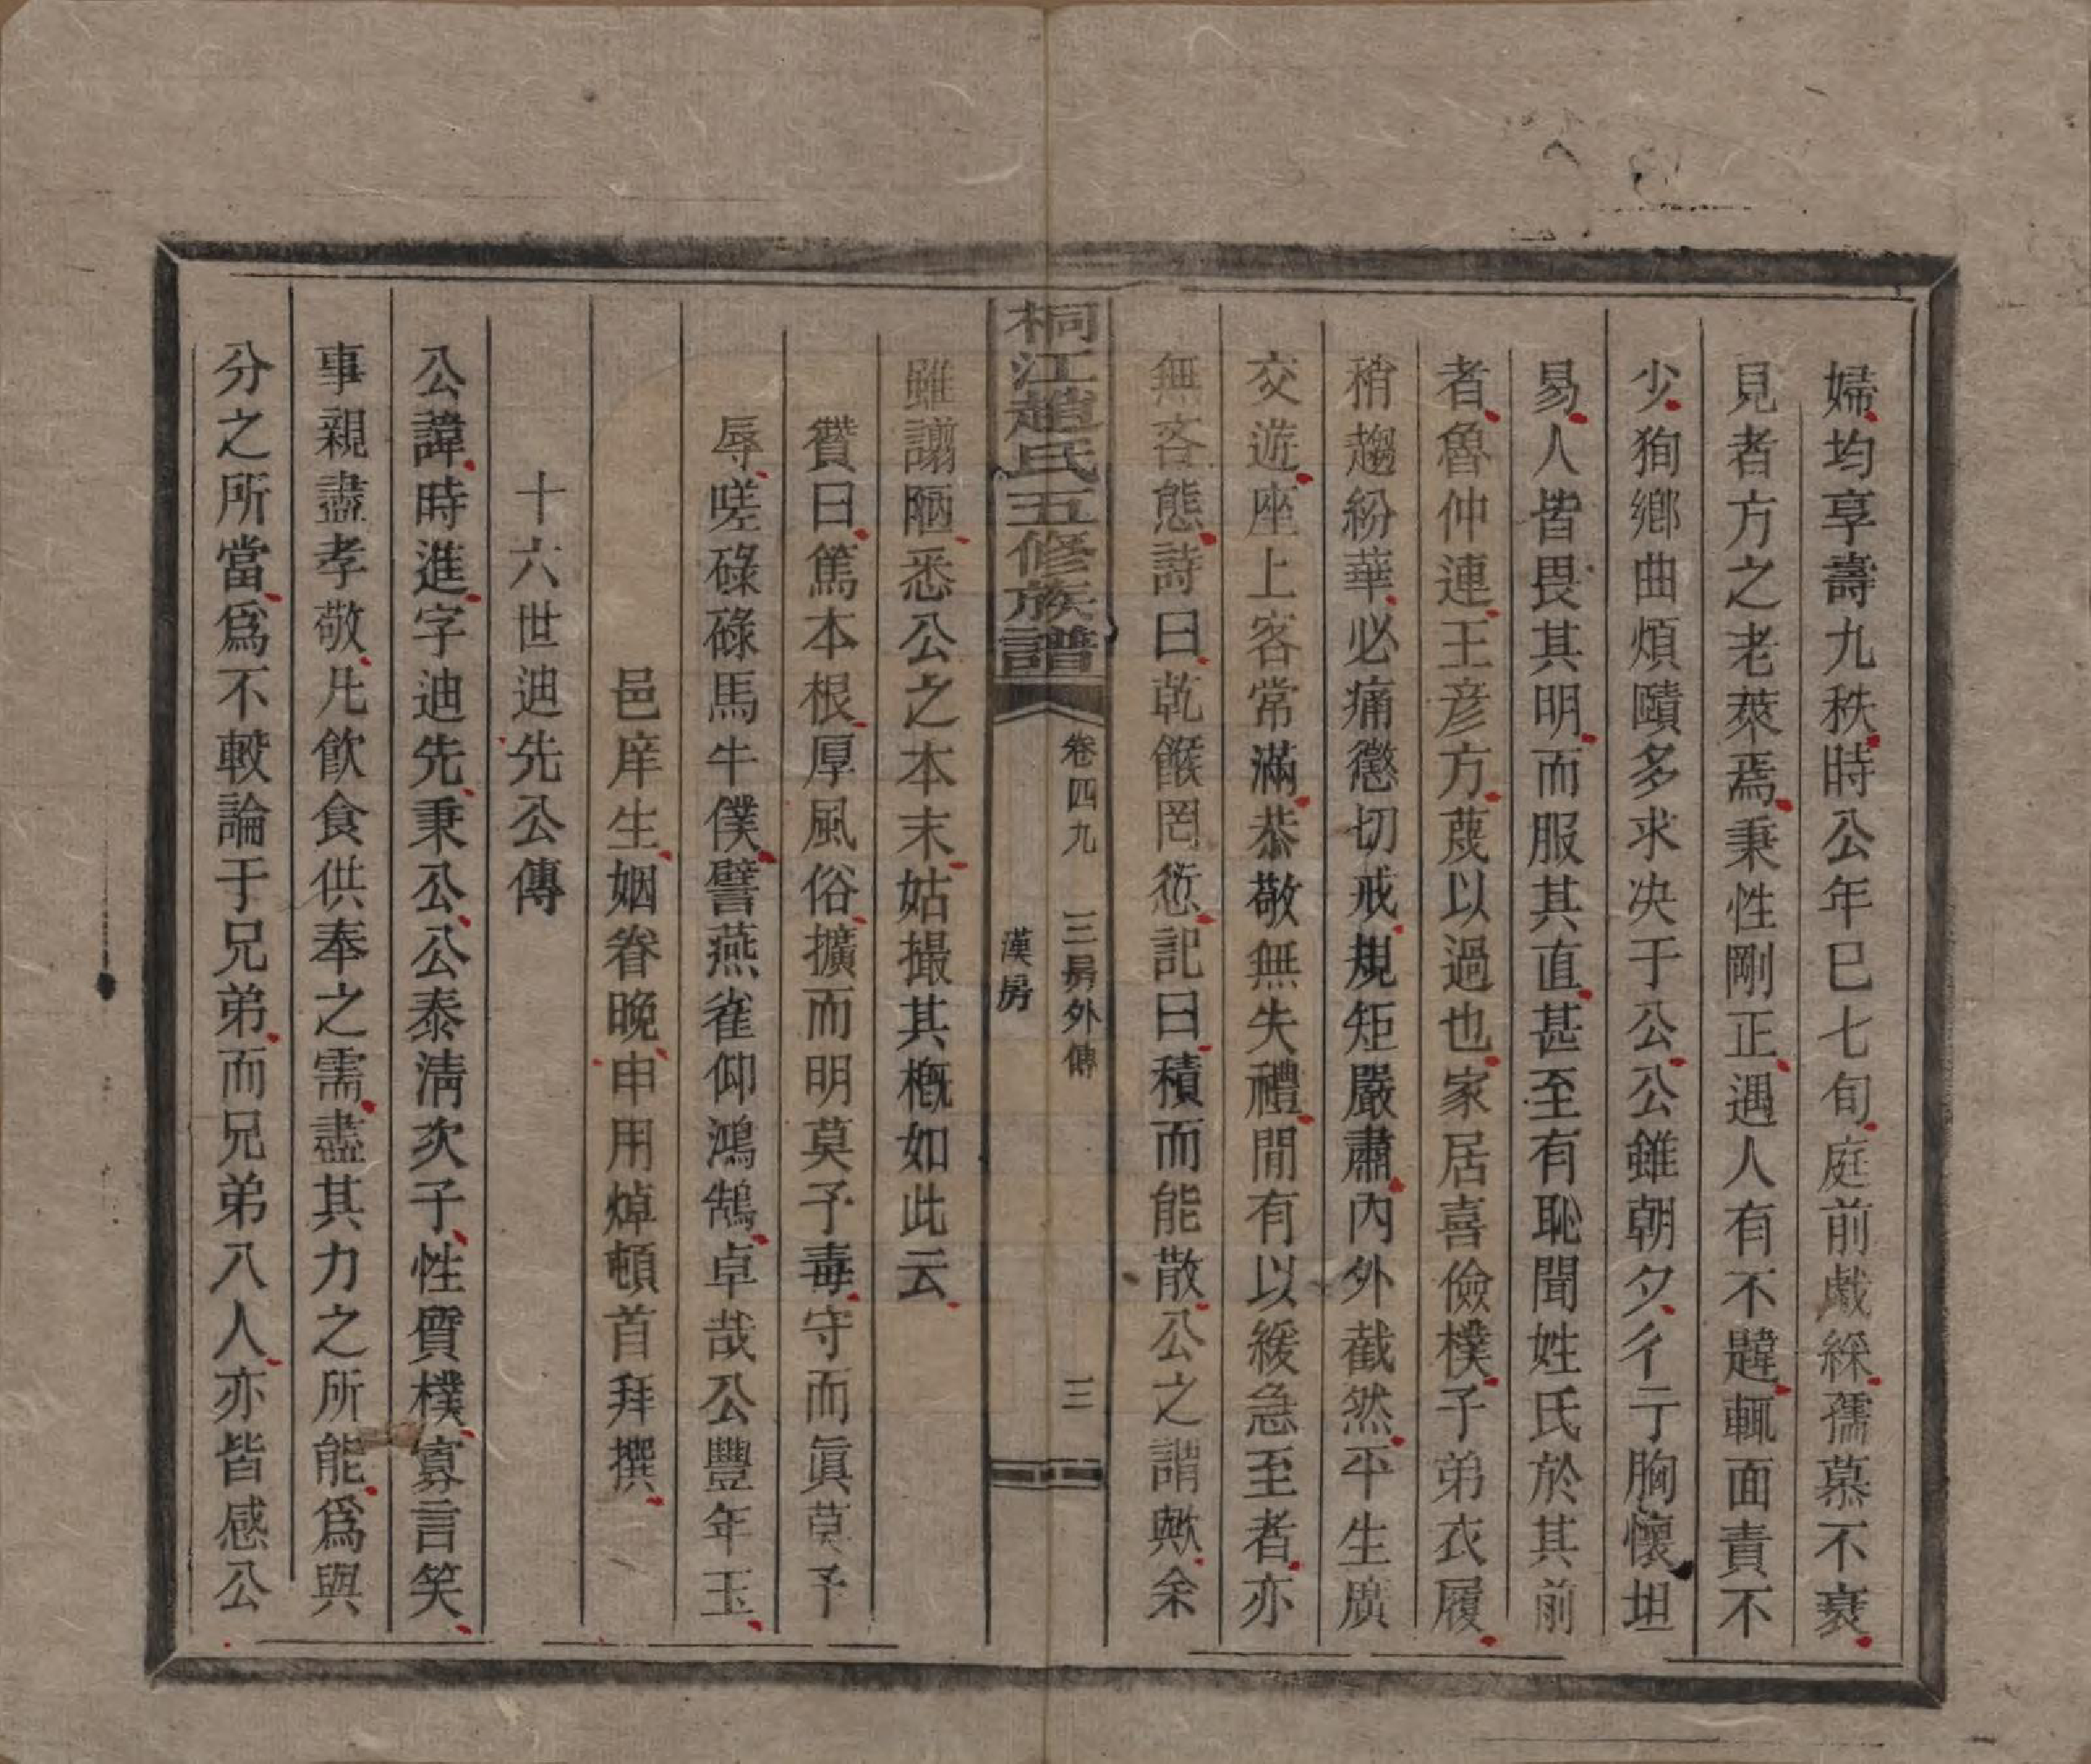 婦均享壽九秩時公年巳七旬庭前戱綵孺慕不衰
見者方之老萊焉秉性剛正遇人有不韙輒面責不
少狥鄉曲煩賾多求决于公公雖朝夕彳亍胸懷坦
易人皆畏其明而服其直甚至有恥聞姓氏於其前
者魯仲連王彦方蔑以過也家居喜儉樸子弟衣履
稍趨紛華必痛懲切戒規矩嚴肅內外截然平生廣
交遊座上客常滿恭敬無失禮間有以緩急至者亦
無吝態詩曰乾餱罔愆記曰積而能散公之謂歟余
桐江趙氏五修族譜
卷四九 三房外傳 三
漢房
雖謭陋悉公之本末姑撮其槪如此云
贊曰篤本根厚風俗擴而明莫予毒守而眞莫予
辱嗟碌碌馬牛僕譬燕雀仰鴻鵠卓哉公豐年玉
邑庠生姻眷晚申用焯頓首拜撰
十六世迪先公傳
公諱時進字迪先秉公公泰淸次子性質樸寡言笑
事親盡孝敬凡飮食供奉之需盡其力之所能爲與
分之所當爲不較論于兄弟而兄弟八人亦皆感公